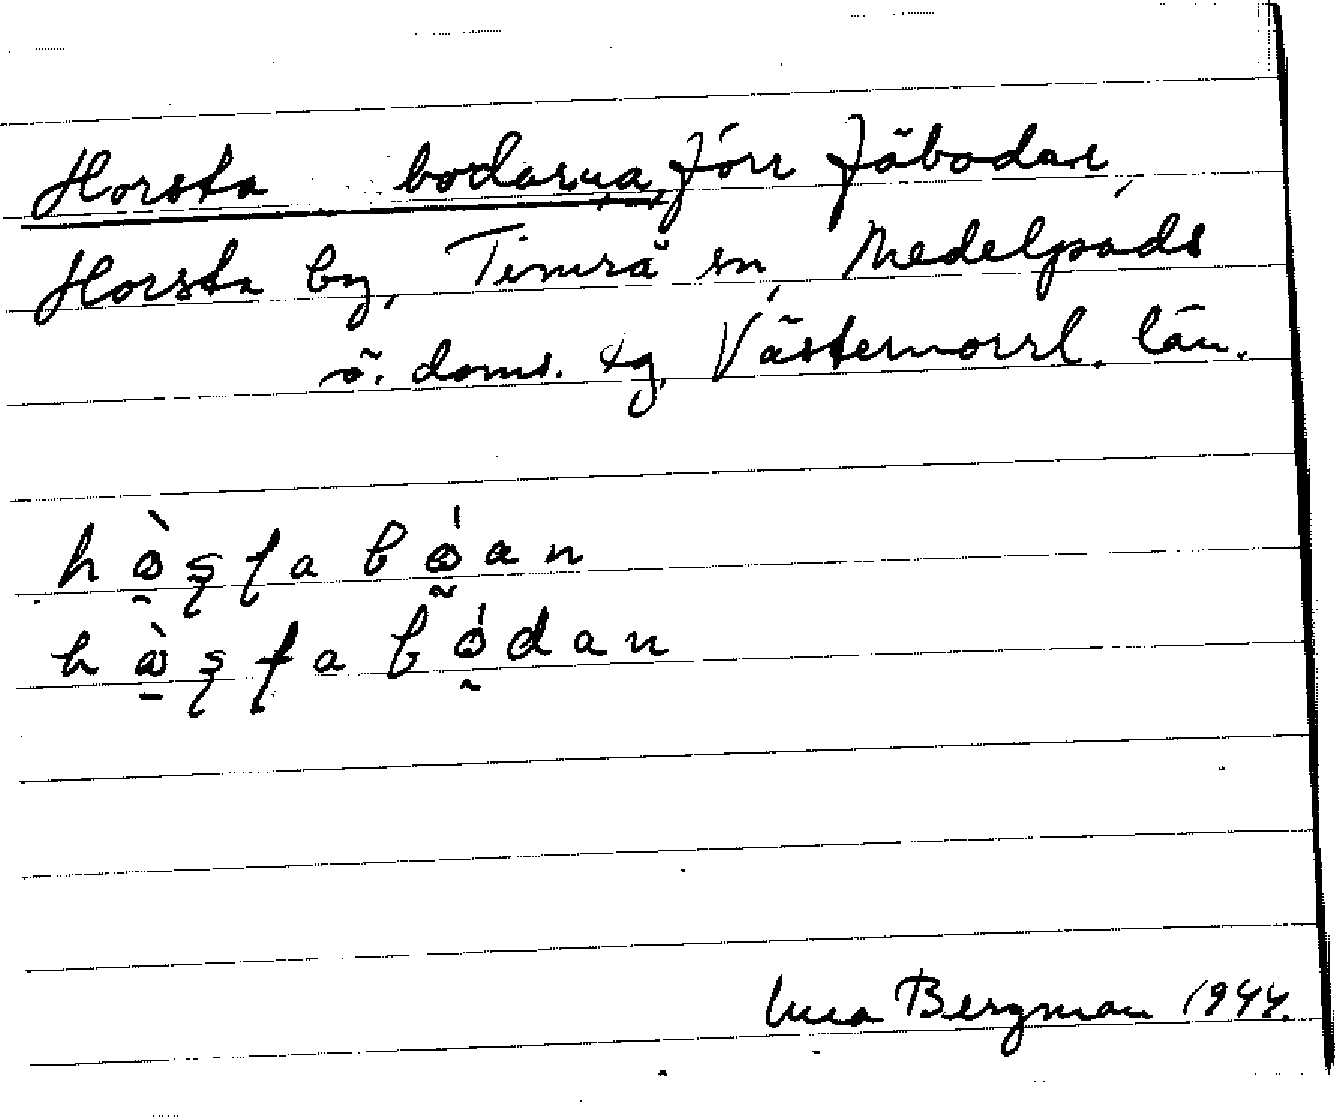 Horsta bodarna, förr fäbodar,
Horsta by, Timrå sn, Medelpads
ö. doms. tg, Västernorrl. län.
hòṣṭa bóan
hàṣṭa bódan
Bergman 1944.